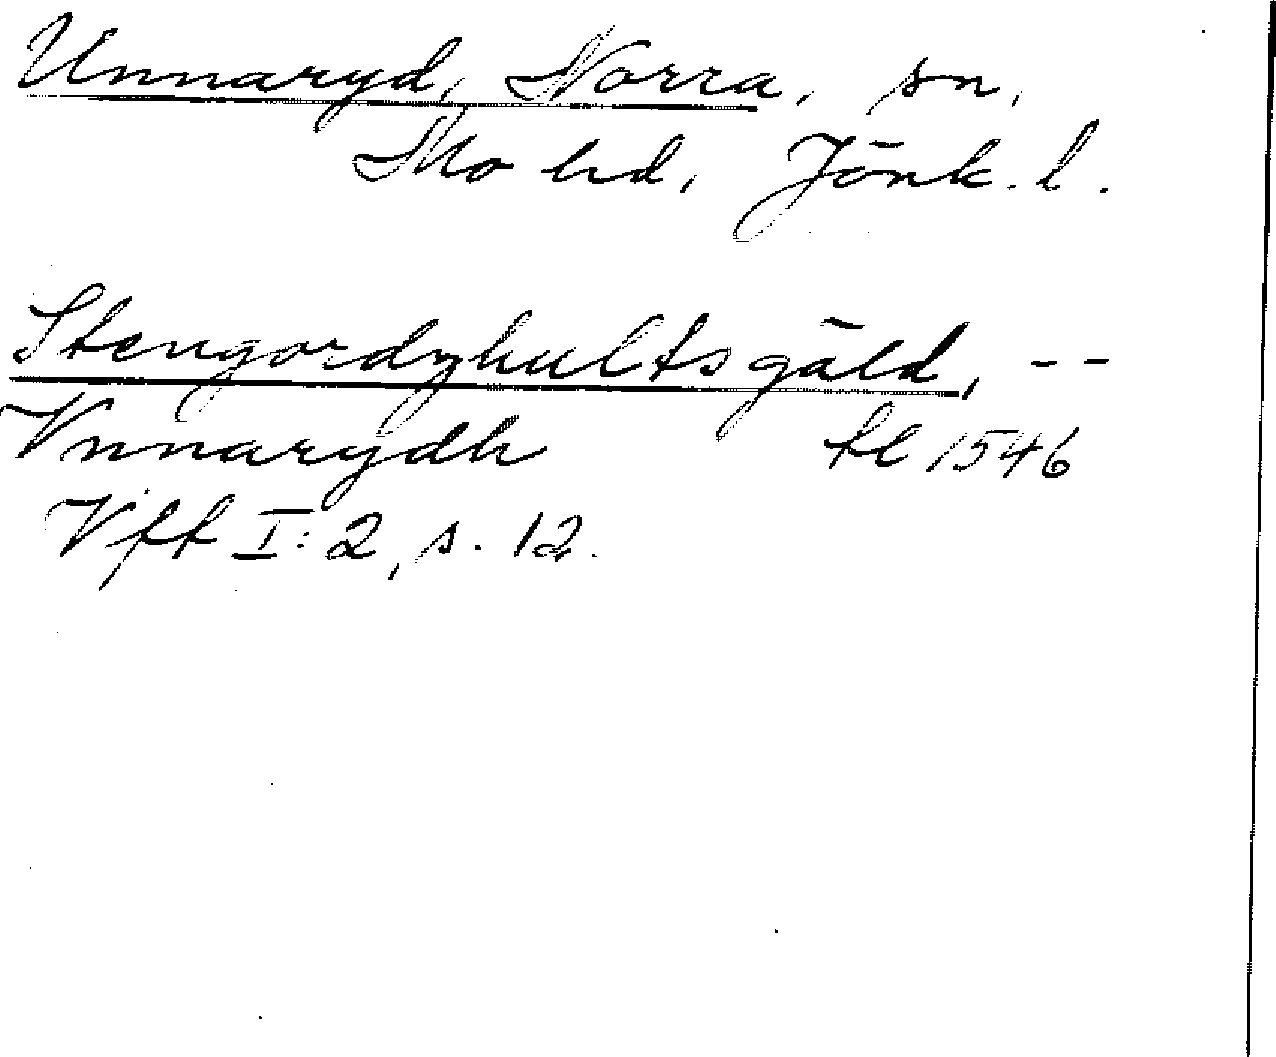 Unnaryd, Norra, sn,
Mo hd, Jönk. l.
Stengordzhultsgäld, --
Vnnarydh tl 1546
Vff I:2, s. 12.